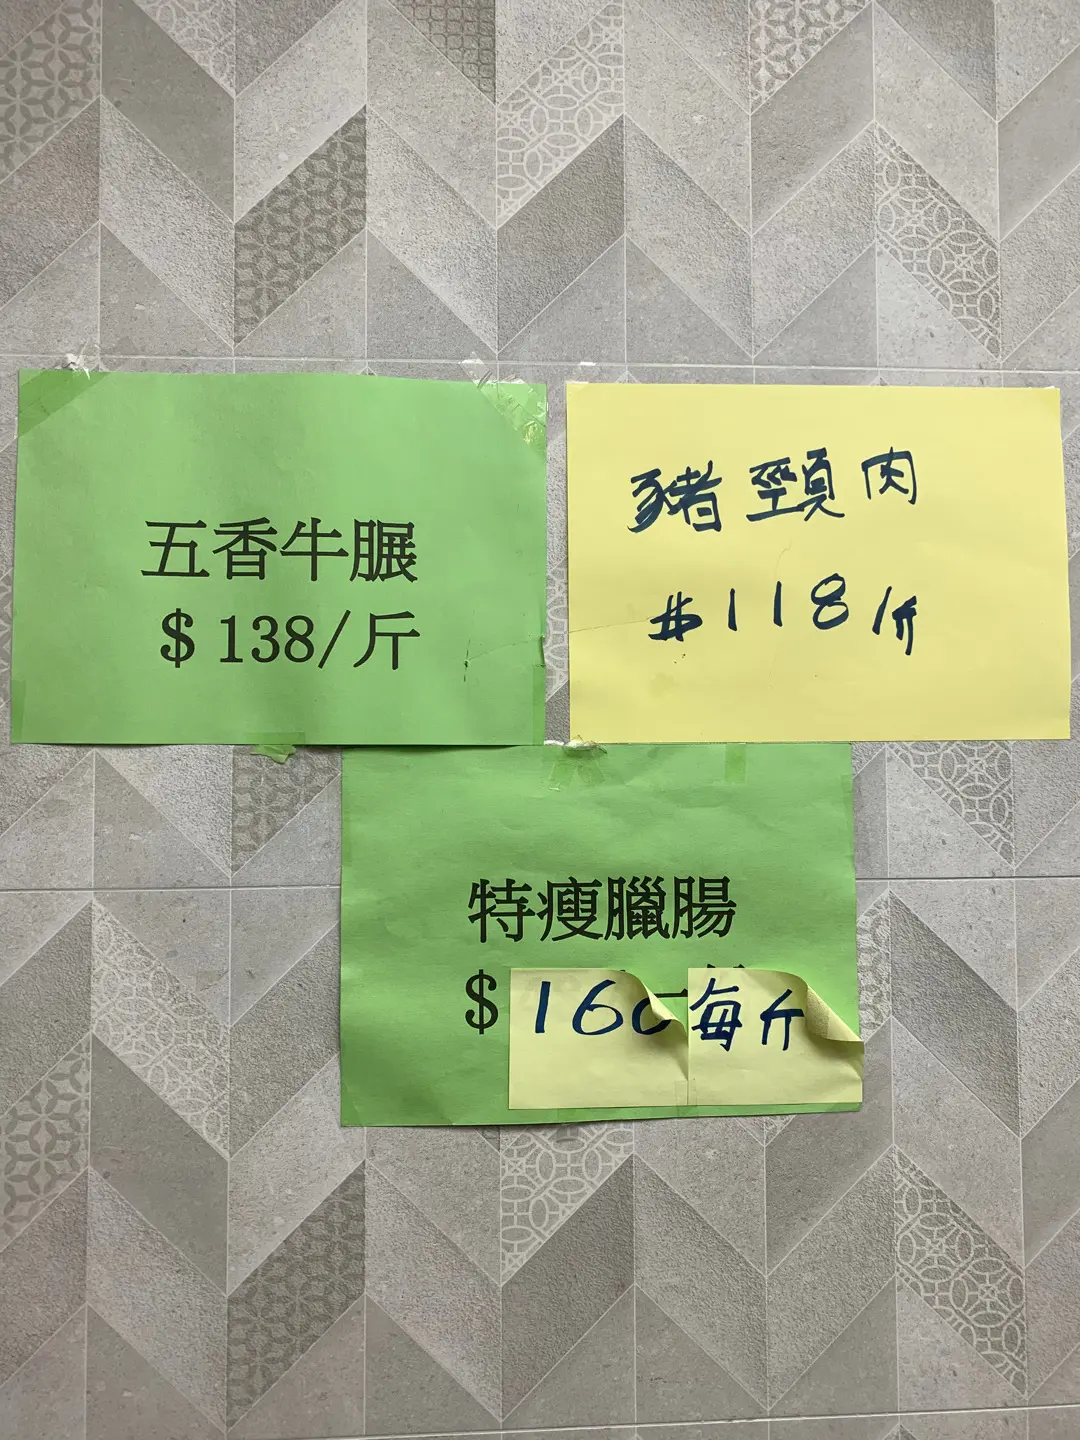 五香牛𦟌
$138/斤
豬頸肉
$118/斤
特瘦臘腸
$160每斤